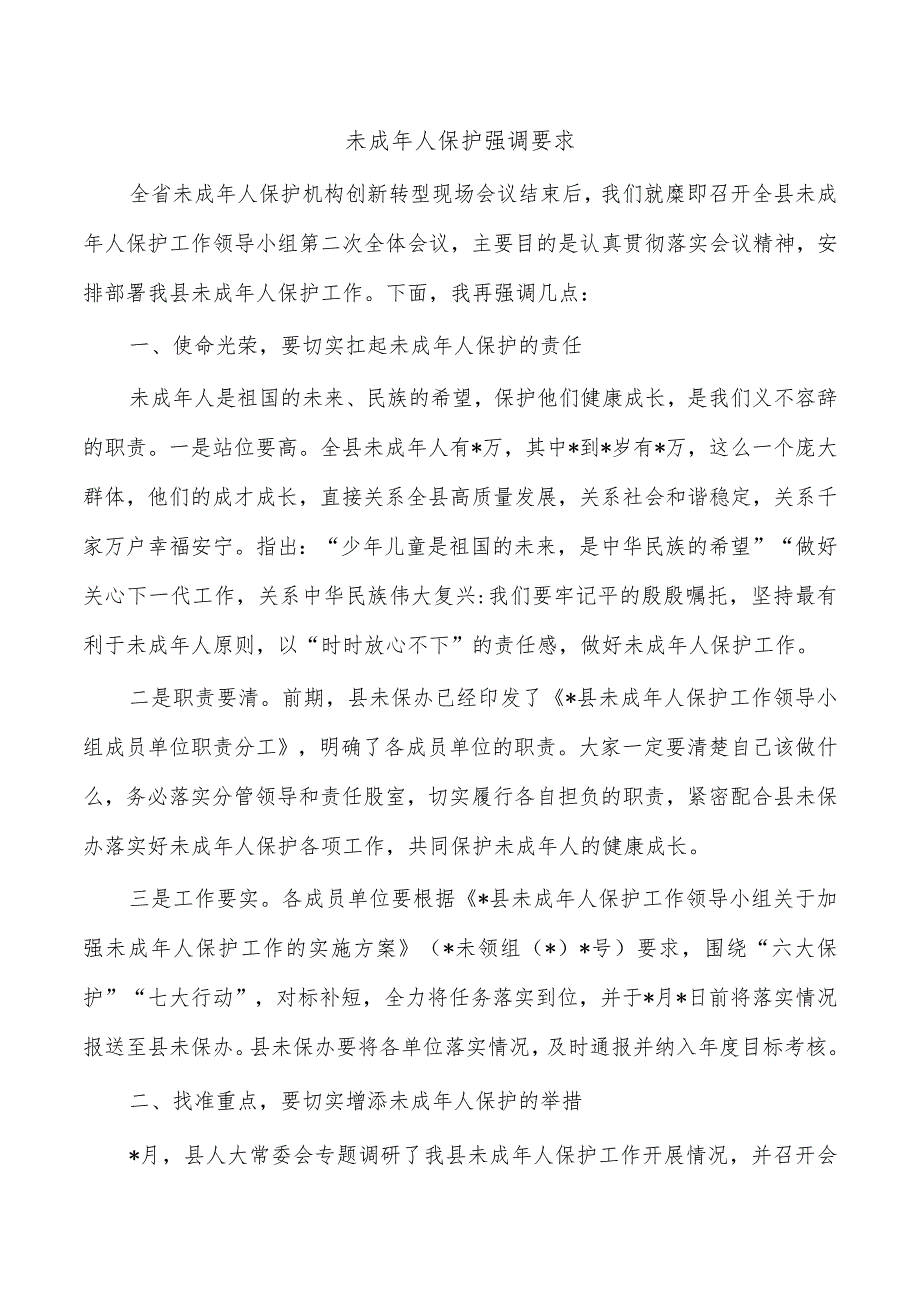 未成年人保护强调要求
全省未成年人保护机构创新转型现场会议结束后，我们就糜即召开全县未成
年人保护工作领导小组第二次全体会议，主要目的是认真贯彻落实会议精神，安
排部署我县未成年人保护工作。下面，我再强调几点：
一、使命光荣，要切实扛起未成年人保护的责任
未成年人是祖国的未来、民族的希望，保护他们健康成长，是我们义不容辞
的职责。一是站位要高。全县未成年人有*万，其中*到*岁有*万，这么一个庞大
群体，他们的成才成长，直接关系全县高质量发展，关系社会和谐稳定，关系千
家万户幸福安宁。指出：“少年儿童是祖国的未来，是中华民族的希望”“做好
关心下一代工作，关系中华民族伟大复兴:我们要牢记平的殷殷嘱托，坚持最有
利于未成年人原则，以“时时放心不下”的责任感，做好未成年人保护工作。
二是职责要清。前期，县未保办已经印发了《*县未成年人保护工作领导小
组成员单位职责分工》，明确了各成员单位的职责。大家一定要清楚自己该做什
么，务必落实分管领导和责任股室，切实履行各自担负的职责，紧密配合县未保
办落实好未成年人保护各项工作，共同保护未成年人的健康成长。
三是工作要实。各成员单位要根据《*县未成年人保护工作领导小组关于加
强未成年人保护工作的实施方案》（*未领组（*）*号）要求，围绕“六大保
护”“七大行动”，对标补短，全力将任务落实到位，并于*月*日前将落实情况
报送至县未保办。县未保办要将各单位落实情况，及时通报并纳入年度目标考核。
二、找准重点，要切实增添未成年人保护的举措
*月，县人大常委会专题调研了我县未成年人保护工作开展情况，并召开会